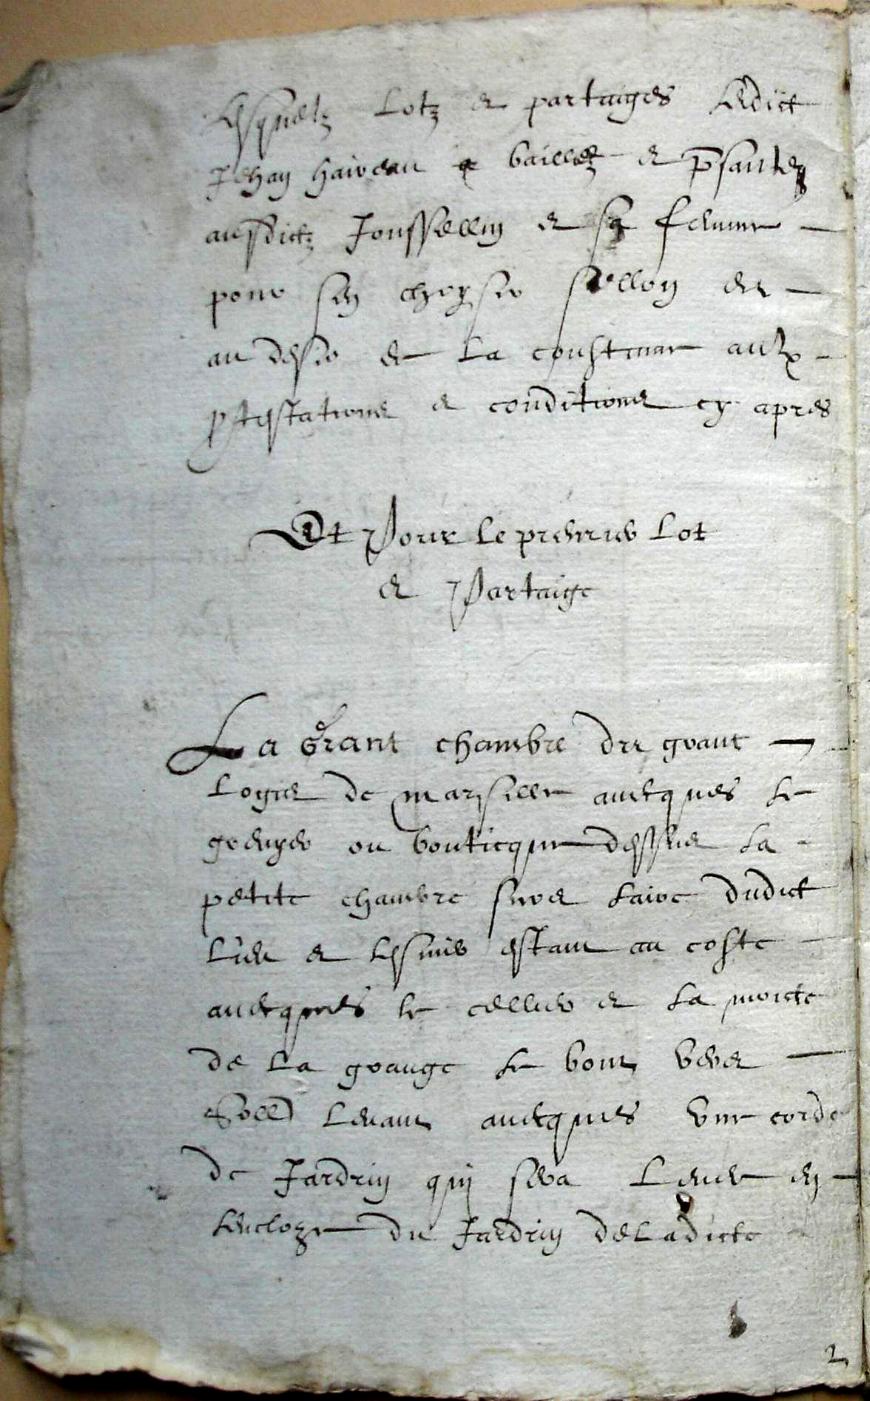 Lesquelz lotz et partaiges ledict
Jehan haireau a baillez et psantez
ausdictz Jousselin et sa femme
pour sen choysir sellon et
au desir de la coustume aulx
ptestations et conditions cy apres
Et Pour le premier lot
et Partaige
La Grant chambre du grant
logis de marsille avecques le
grenyer ou bouticque dessus la
petite chambre sur laire dudict
lieu et estant au coste
avecques le cellier et la moicte
de la grange le bout vers
Soll levant avecques une corde
de Jardrin qui sera en
lencloze du Jardrin de ladicte
2